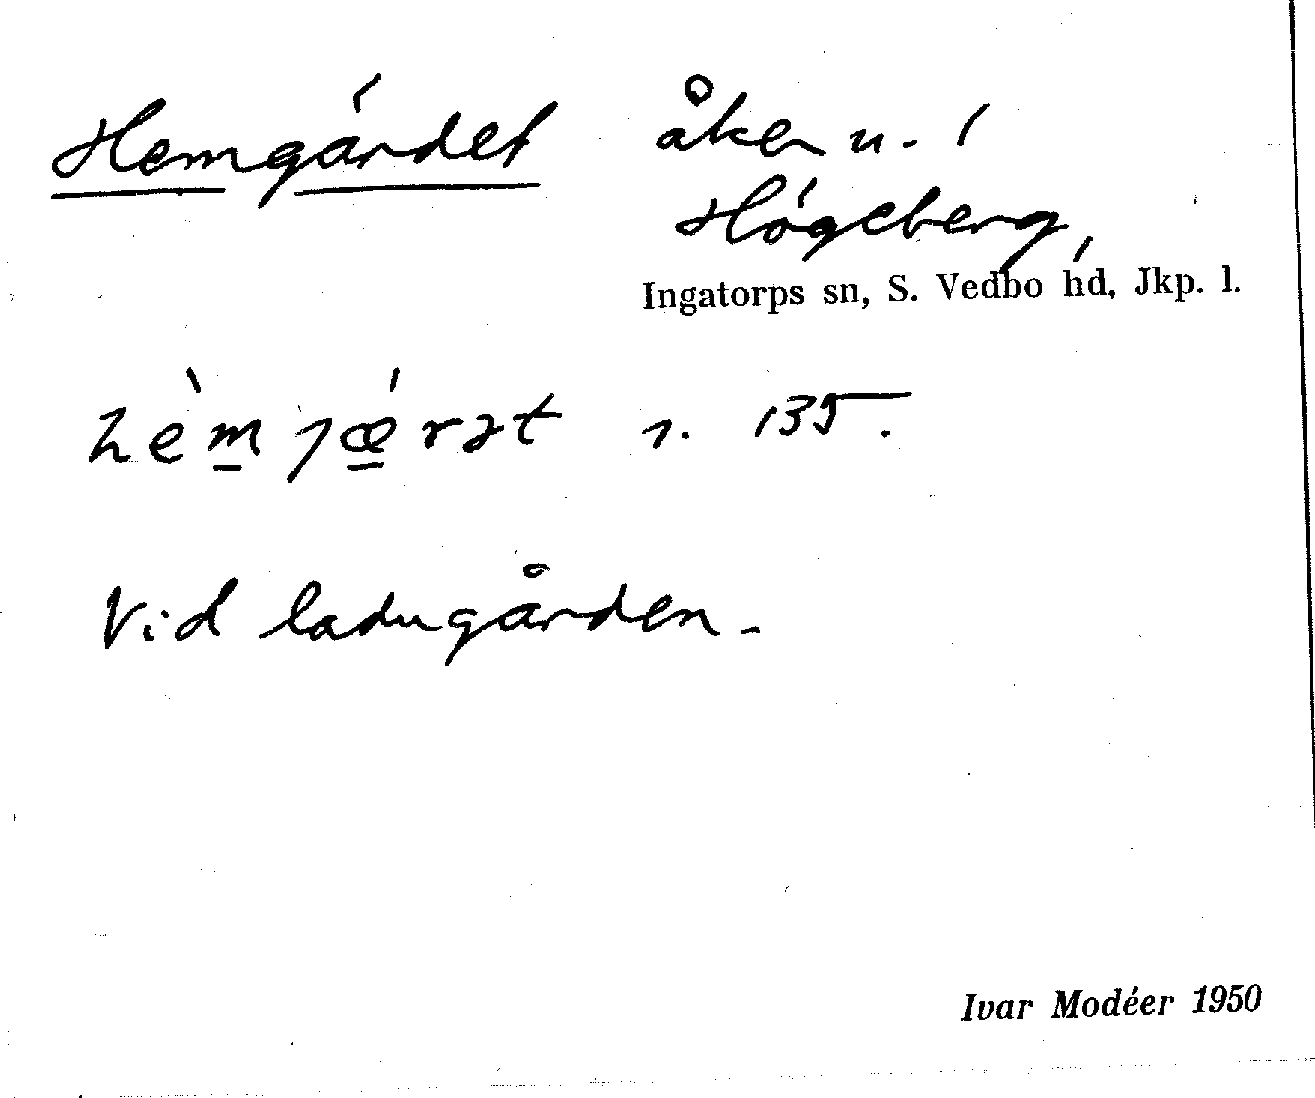 Hemgärdet åker u. i
Högeberg,
Ingatorps sn, S. Vedbo hd, Jkp. l.
hèmjǽrət 1. 135.
Vid ladugården.
Ivar Modéer 1950